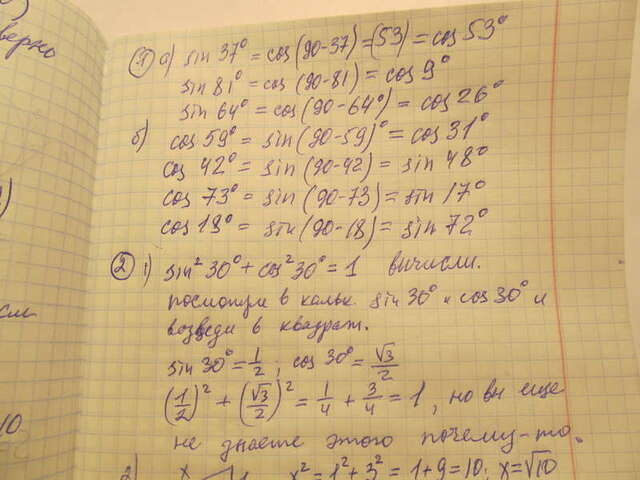 верно
① а) sin 37° = cos (90-37) = (53) = cos 53°
sin 81° = cos (90-81) = cos 9°
sin 64° = cos (90-64°) = cos 26°
б) cos 59° = sin (90-59)° = cos 31°
cos 42° = sin (90-42) = sin 48°
cos 73° = sin (90-73) = sin 17°
cos 18° = sin (90-18) = sin 72°
② 1) sin² 30° + cos² 30° = 1 вычисли.
посмотри в кальк. sin 30° и cos 30° и
возведи в квадрат.
sin 30° = 1/2 ; cos 30° = √3/2
(1/2)² + (√3/2)² = 1/4 + 3/4 = 1, но вы еще
не знаете этого почему-то.
2) x x² = 1² + 3² = 1 + 9 = 10; x = √10
10